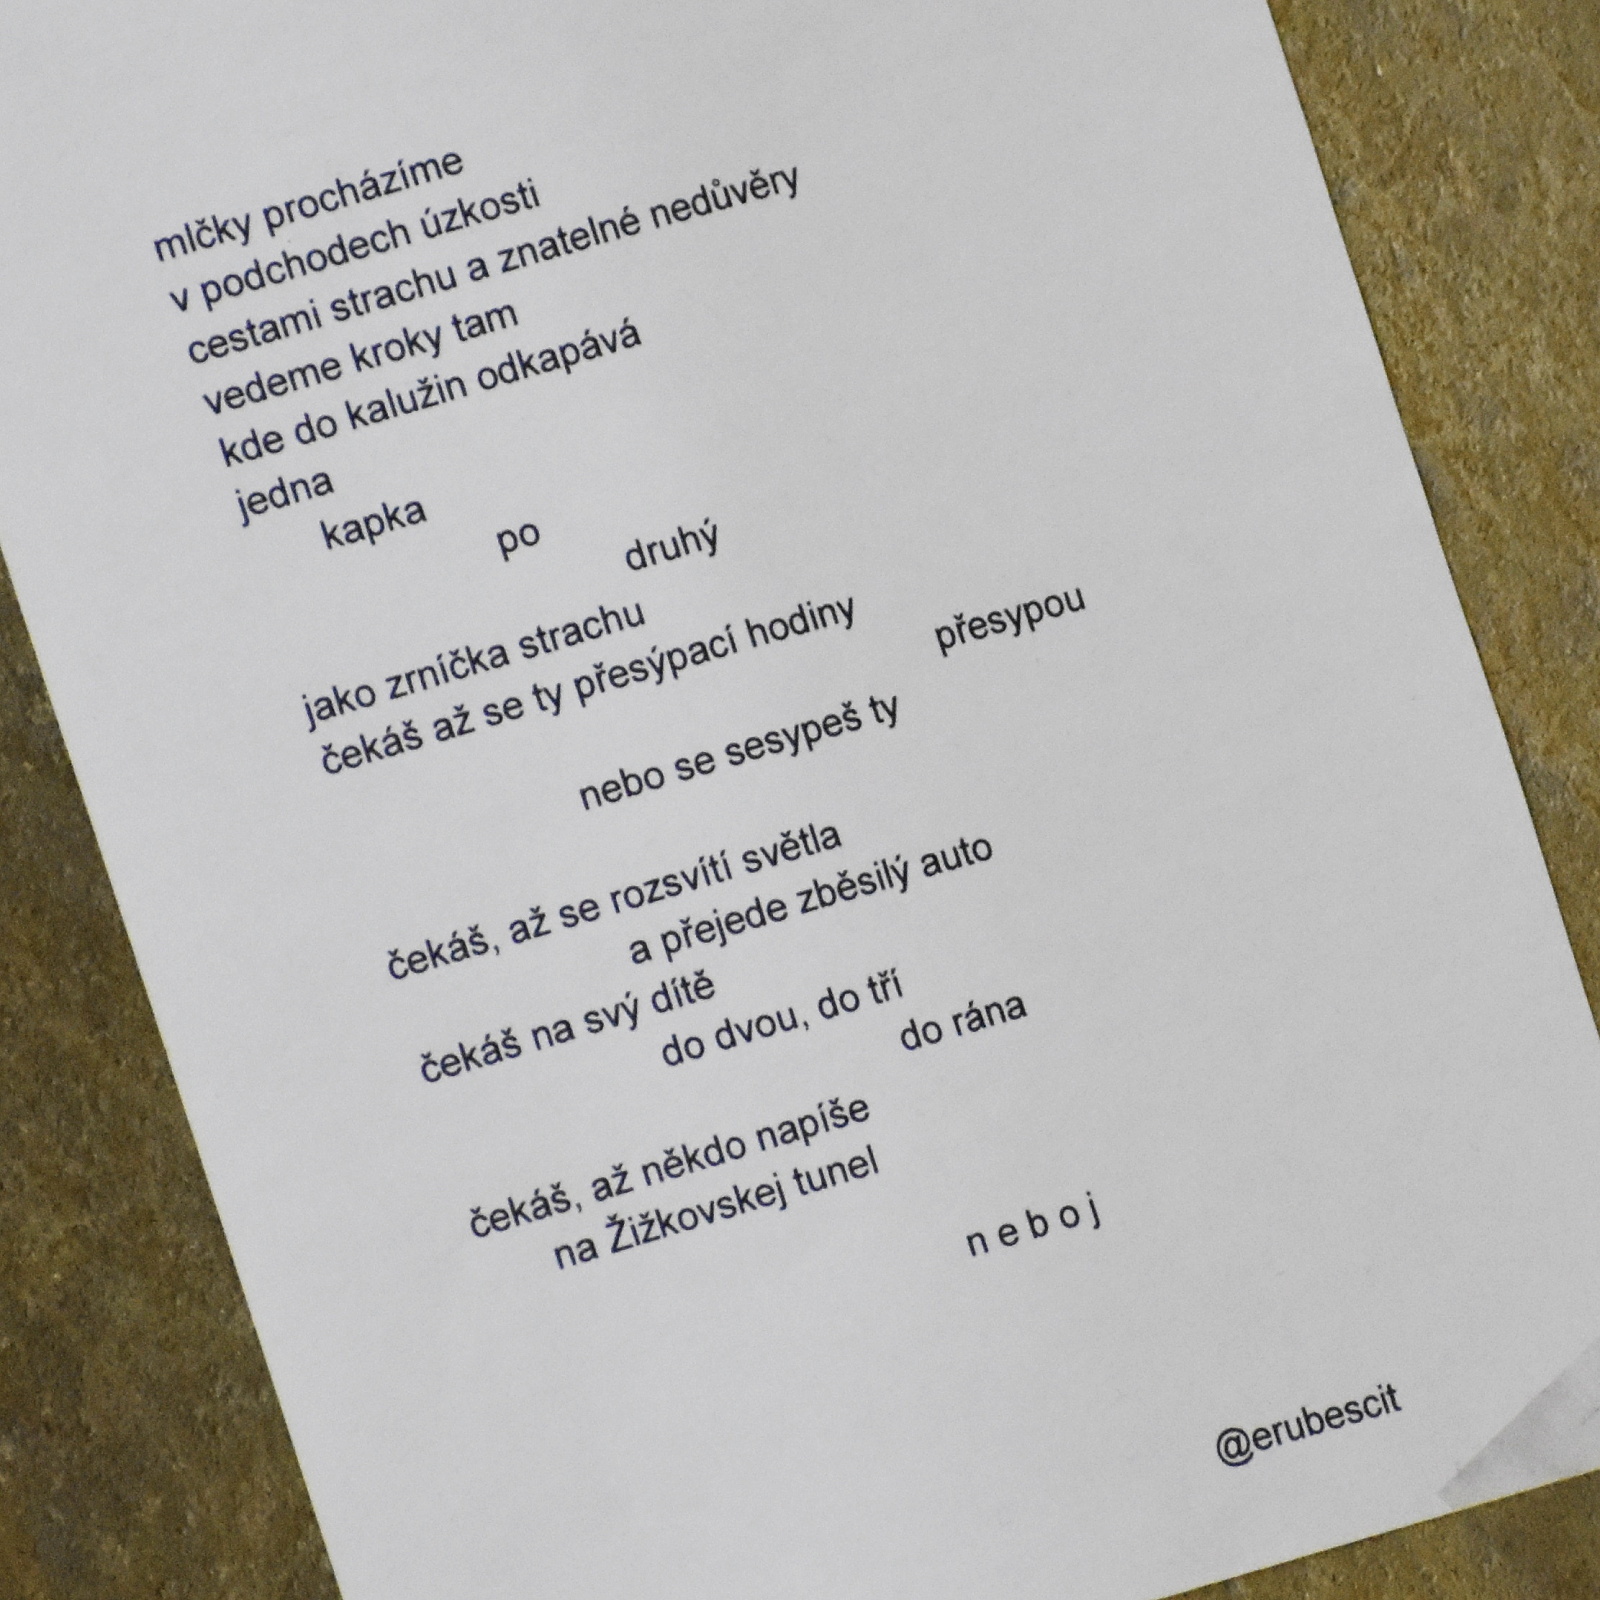 mlčky procházíme
v podchodech úzkosti
cestami strachu a znatelné nedůvěry
vedeme kroky tam
kde do kalužin odkapává
jedna
kapka
po
druhý
jako zrníčka strachu
čekáš až se ty přesýpací hodiny
přesypou
nebo se sesypeš ty
čekáš, až se rozsvítí světla
a přejede zběsilý auto
čekáš na svý dítě
do dvou, do tří
do rána
čekáš, až někdo napíše
na Žižkovskej tunel
n e b o j
@erubescit